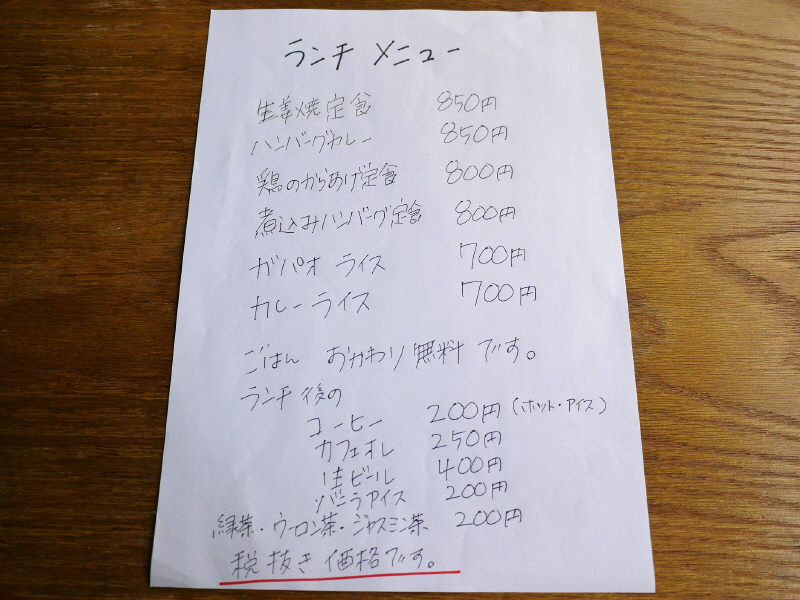 ランチ メニュー
生姜焼定食 850円
ハンバーグカレー 850円
鶏のからあげ定食 800円
煮込みハンバーグ定食 800円
ガパオ ライス 700円
カレーライス 700円
ごはん おかわり 無料です。
ランチ後の
コーヒー 200円(ホット・アイス)
カフェオレ 250円
生ビール 400円
バニラアイス 200円
緑茶・ウーロン茶・ジャスミン茶 200円
税抜き価格です。